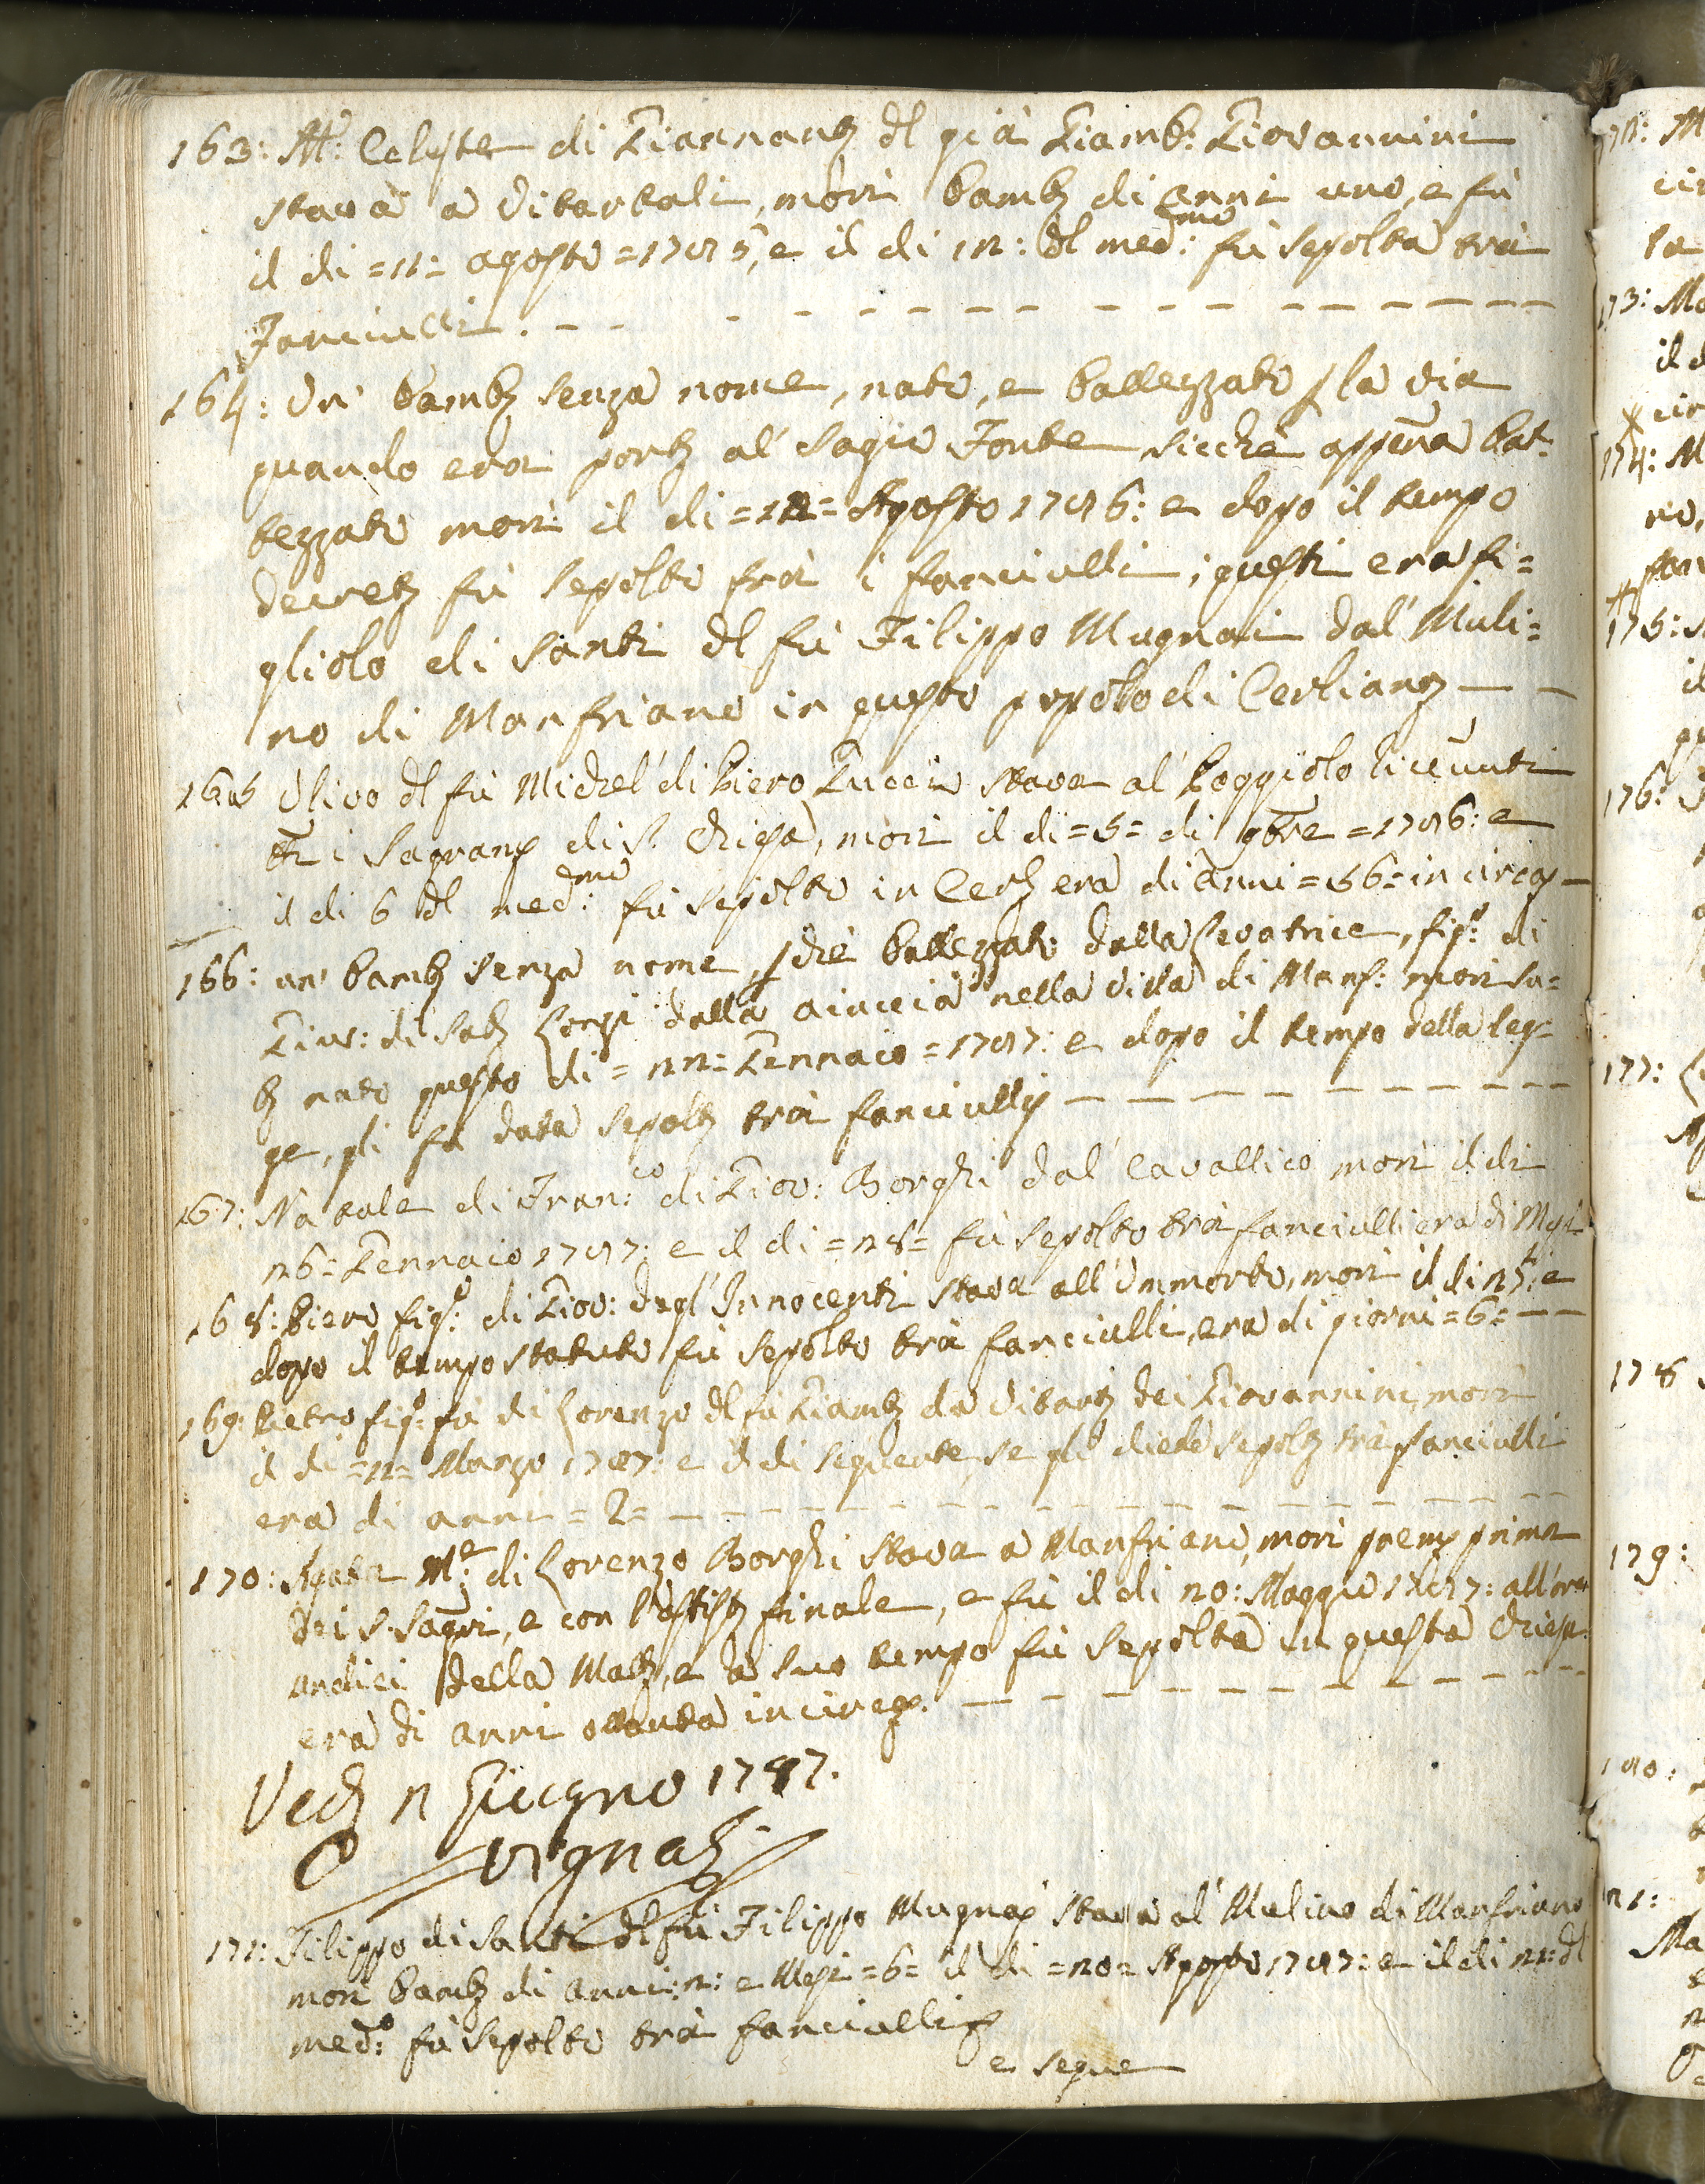 163: Mª: Celeste di Giannant dl già Giamb: Giovannini
stava a Vitartali, mori bamb di anni uno, e fù
il di =11= agosto =1785, e il di 12: dl med:mo fù sepolta trà
Fanciulli. - - - - - - - - - -
164: Un' bamb senza nome, nato, e battezzato p la via
quando era port al' Sagro Fonte sicche appena bat:
tezzato mori il di =12= Agosto 1786: e dopo il tempo
decret fù sepolto frà i fanciulli; questi era fi=
gliolo di Santi dl fù Filippo Mugnai dal' Muli=
no di Manfriano in questo popolo di Cerliano - -
165 Ulivo dl fù Michel' di Piero Lucci stava al' Poggiolo
i Sagram di S. Chiesa, mori il di =5= di 9bre =1786: e
il di 6 dl med:mo fù sepolto in Cerl era di anni =56= in circa -
166: un' bamb senza nome, p che battezzato dalla Levatrice, fig:o di
Giov: di Sab Lorzi dalla aiaccia nella Villa di Manf: mori su=
b nato questo di =22= Gennaio =1787: e dopo il tempo della leg=
ge, gli fù data sepolt trà fanciulli - - - - - - -
167: Natale di Fran:co di Giov: Borghi dal' Cavallico mori il di
26= Gennaio 1787: e il di =28= fù sepolto trà fanciulli era di Mesi
168: Piero fig:o di Giov: degl' Innocenti stava all' Ommorto, mori il di 25: e
dopo il tempo statuto fù sepolto trà fanciulli, era di giorni =6= - -
169: Pietro fig:o fù di Lorenzo dl fù Giamb da Vitart dei Giovannini, mori
il di =12= Marzo 1787: e il di seguente se gli diede sepolt trà fanciulli
era di anni =2= - - - - - - - - - -
170: Agata Mª: di Lorenzo Borghi stava a Manfriano, mori prem prima
dei S. Sagri, e con l'estista finale, e fù il di 20: Maggio 1787: all'ore
undici della Matt, e a suo tempo fù sepolta in questa Chiesa.
era di anni ottanta in circa. - - - - - - - - -
Ved 11 Giugno 1787.
171: Filippo di Santi dl fù Filippo Mugnai stava al' Mulino di Manfriano
mori bamb di anni: 2: e Mesi =6= il di =20= Agosto 1787: e il di 21: dl
med:o fù sepolto trà fanciulli
e segue